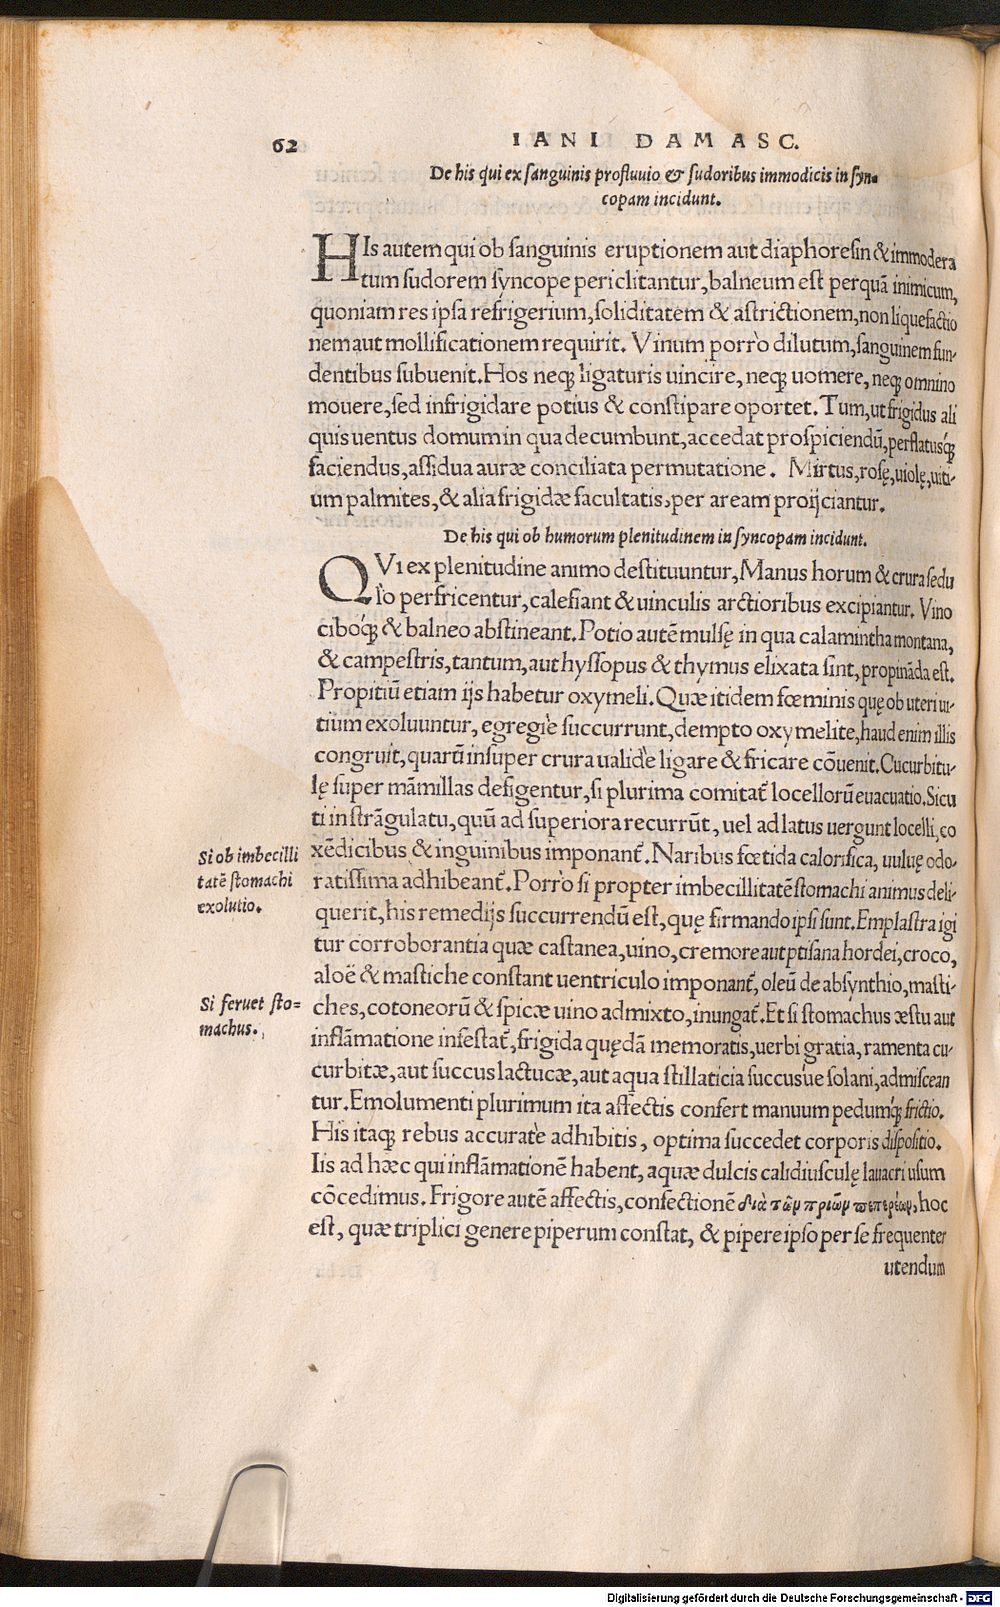 62
IANI DAMASC.
De his qui ex sanguinis profluuio & sudoribus immodicis in syn-
copam incidunt.
HIs autem qui ob sanguinis eruptionem aut diaphoresin & immodera
tum sudorem syncope periclitantur, balneum est perquã inimicum,
quoniam res ipsa refrigerium, soliditatem & astrictionem, non liquefactio
nem aut mollificationem requirit. Vinum porrò dilutum, sanguinem fun-
dentibus subuenit. Hos neq; ligaturis uincire, neq; uomere, neq; omnino
mouere, sed infrigidare potius & constipare oportet. Tum, ut frigidus ali
quis uentus domum in qua decumbunt, accedat prospiciendũ, perflatusq́;
faciendus, assidua auræ conciliata permutatione. Mirtus, rosę, uiolę, uiti-
um palmites, & alia frigidæ facultatis, per aream proijciantur.
De his qui ob humorum plenitudinem in syncopam incidunt.
QVI ex plenitudine animo destituuntur, Manus horum & crura sedu
lò perfricentur, calefiant & uinculis arctioribus excipiantur. Vino
ciboq́; & balneo abstineant. Potio autẽ mulsę in qua calamintha montana,
& campestris, tantum, aut hyssopus & thymus elixata sint, propinãda est.
Propitiũ etiam ijs habetur oxymeli. Quæ itidem fœminis quę ob uteri ui-
tium exoluuntur, egregiè succurrunt, dempto oxymelite, haud enim illis
congruit, quarũ insuper crura ualidè ligare & fricare cõuenit. Cucurbitu-
lę super mãmillas defigentur, si plurima comitat̃ locellorũ euacuatio. Sicu
ti in strãgulatu, quũ ad superiora recurrũt, uel ad latus uergunt locelli, co
xẽdicibus & inguinibus imponant̃. Naribus fœtida calorifica, uuluę odo-
ratissima adhibeant̃. Porrò si propter imbecillitatẽ stomachi animus deli-
querit, his remedijs succurrendũ est, quę firmando ipsi sunt. Emplastra igi
tur corroborantia quæ castanea, uino, cremore aut ptisana hordei, croco,
aloë & mastiche constant uentriculo imponant̃, oleũ de absynthio, masti-
ches, cotoneorũ & spicæ uino admixto, inungat̃. Et si stomachus æstu aut
inflãmatione infestat̃, frigida quędã memoratis, uerbi gratia, ramenta cu-
curbitæ, aut succus lactucæ, aut aqua stillaticia succusúe solani, admiscean
tur. Emolumenti plurimum ita affectis confert manuum pedumq́; frictio.
His itaq; rebus accuratè adhibitis, optima succedet corporis dispositio.
Iis ad hæc qui inflãmationẽ habent, aquæ dulcis calidiusculę lauacri usum
cõcedimus. Frigore autẽ affectis, confectionẽ διὰ τῶν τριῶν πεπερέων, hoc
est, quæ triplici genere piperum constat, & pipere ipso per se frequenter
utendum
Si ob imbecilli
tatẽ stomachi
exolutio.
Si feruet sto-
machus.
Digitalisierung gefördert durch die Deutsche Forschungsgemeinschaft - DFG